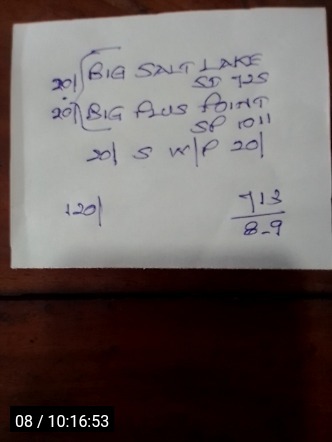 20/ BIG SALT LAKE
SP 725
20/ BIG PLUS POINT
SP 1011
20/ S W/P 20/
120/
713
8-9
08 / 10:16:53